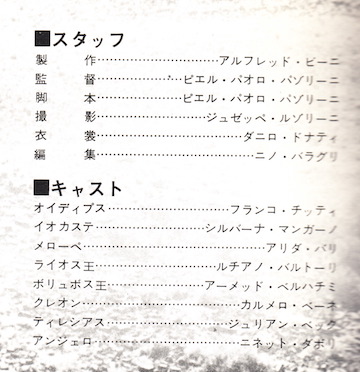 ■スタッフ
製作……………………アルフレッド・ビーニ
監督……………ピエル・パオロ・パゾリーニ
脚本……………ピエル・パオロ・パゾリーニ
撮影…………………ジュゼッペ・ルゾリーニ
衣裳…………………………ダニロ・ドナティ
編集……………………………ニノ・バラグリ
■キャスト
オイディプス……………フランコ・チッティ
イオカステ…………シルバーナ・マンガーノ
メローペ…………………………アリダ・バリ
ライオス王……………ルチアノ・バルトーリ
ポリュボス王………アーメッド・ベルハチミ
クレオン…………………カルメロ・ベーネ
ティレシアス…………ジュリアン・ベック
アンジェロ………………ニネット・ダボリ